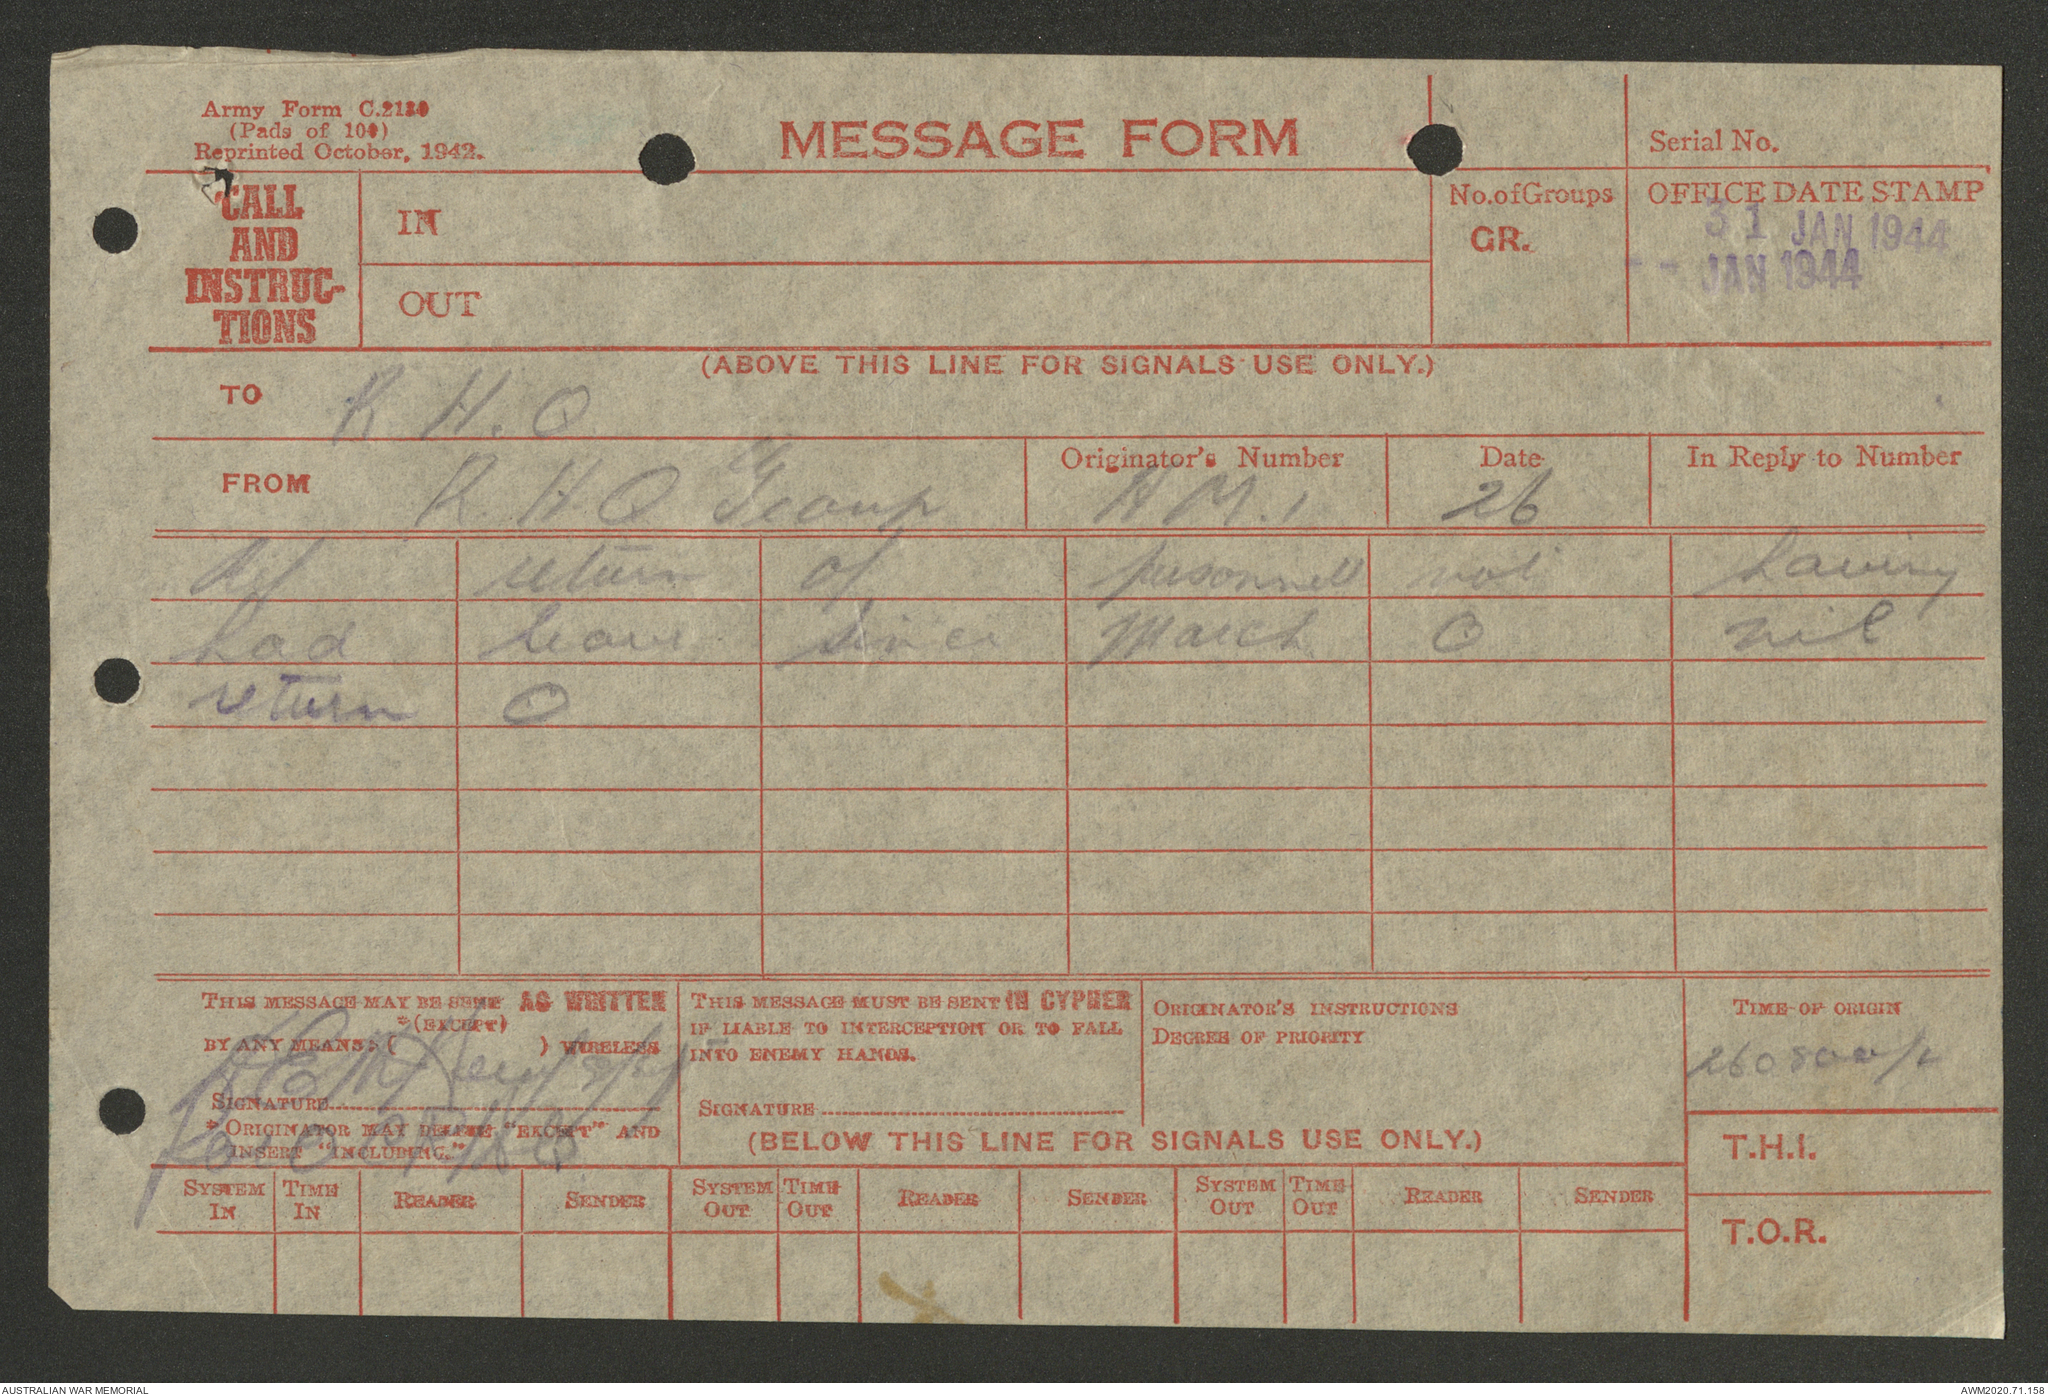 Army Form C.2130
(Pads of 100)
Reprinted October, 1942.
MESSAGE FORM
Serial No.
CALL AND INSTRUC-TIONS
IN
OUT
No. of Groups
GR.
OFFICE DATE STAMP
31 JAN 1944
-- JAN 1944
(ABOVE THIS LINE FOR SIGNALS USE ONLY.)
TO R H.Q
FROM R.H.Q Group
Originator's Number A M.1
Date 26
In Reply to Number
Ref return of personnell not having
had leave since March O nil
return O
THIS MESSAGE MAY BE SENT AS WRITTEN
*(EXCEPT)
BY ANY MEANS. ( ) WIRELESS
SIGNATURE
*ORIGINATOR MAY DELETE "EXCEPT" AND
INSERT "INCLUDING."
THIS MESSAGE MUST BE SENT IN CYPHER
IF LIABLE TO INTERCEPTION OR TO FALL
INTO ENEMY HANDS.
SIGNATURE
ORIGINATOR'S INSTRUCTIONS
DEGREE OF PRIORITY
TIME OF ORIGIN
(BELOW THIS LINE FOR SIGNALS USE ONLY.)
T.H.I.
T.O.R.
SYSTEM IN TIME IN READER SENDER SYSTEM OUT TIME OUT READER SENDER SYSTEM OUT TIME OUT READER SENDER
AUSTRALIAN WAR MEMORIAL
AWM2020.71.158